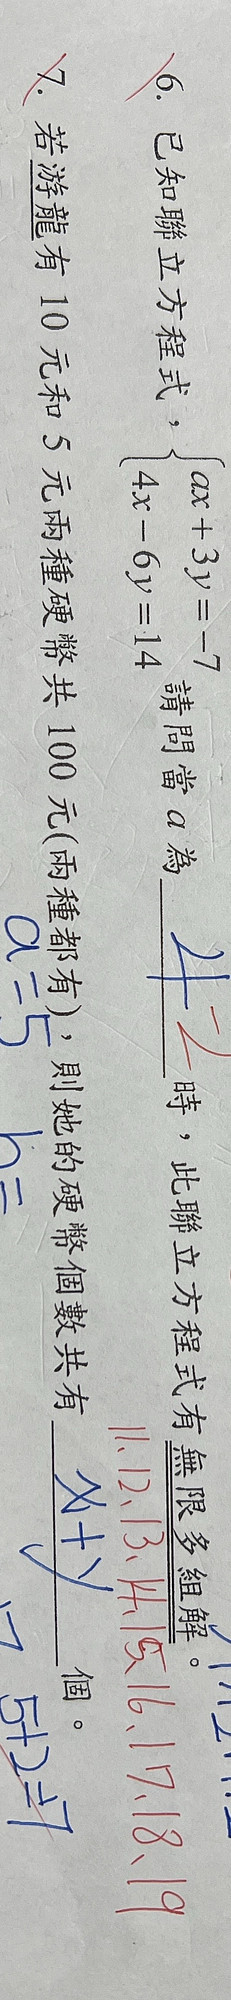 6. 已知聯立方程式，{ax+3y=-7
4x-6y=14 請問當a為 4 -2 時，此聯立方程式有無限多組解。
11、12、13、14、15、16、17、18、19
7. 若游龍有10元和5元兩種硬幣共100元(兩種都有)，則她的硬幣個數共有 x+y 個。
a=5 b=
5+2=7